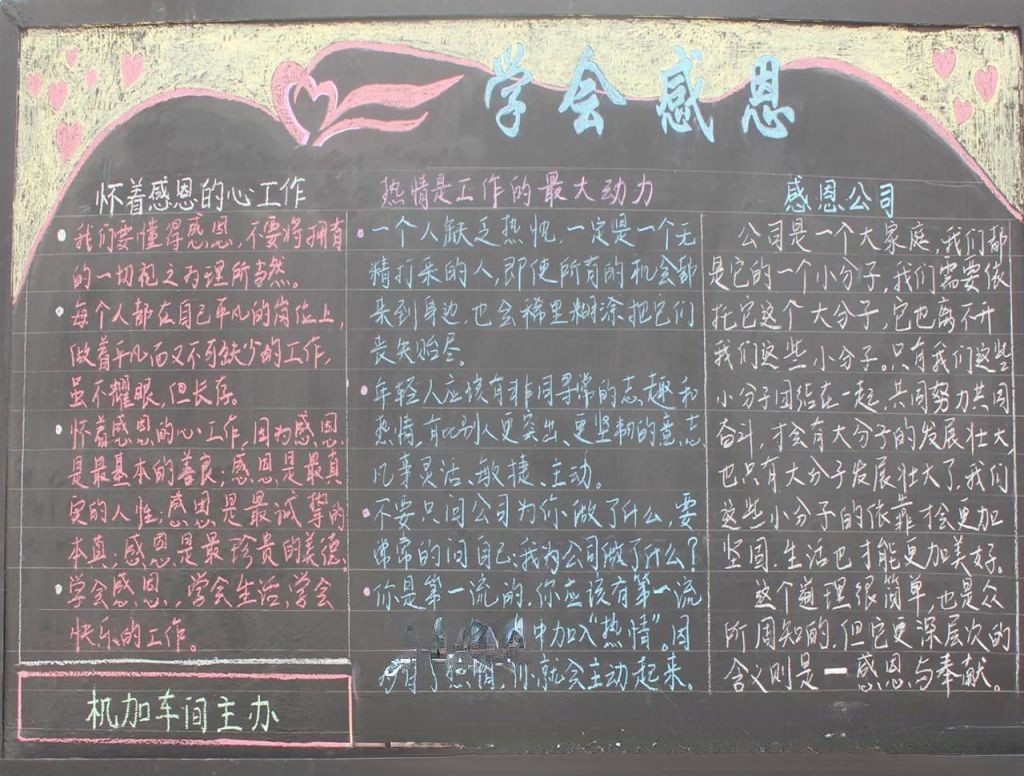 学会感恩
怀着感恩的心工作
我们要懂得感恩,不要将拥有
的一切视之为理所当然。
每个人都在自己平凡的岗位上,
做着平凡而又不可缺少的工作,
虽不耀眼,但长存。
怀着感恩的心工作,因为感恩
是最基本的善良;感恩是最真
实的人性;感恩是最诚挚的
本真;感恩是最珍贵的美德。
学会感恩,学会生活,学会
快乐的工作。
机加车间主办
热情是工作的最大动力
一个人缺乏热忱,一定是一个无
精打采的人,即使所有的机会都
来到身边,也会稀里糊涂把它们
丧失殆尽。
年轻人应该有非同寻常的志趣和
热情,有比别人更突出、更坚韧的意志
凡事灵活、敏捷、主动。
不要只问公司为你做了什么,要
常常的问自己:我为公司做了什么?
你是第一流的,你应该有第一流
中加入“热情”。因
为有了热情,你就会主动起来。
感恩公司
公司是一个大家庭,我们都
是它的一个小分子,我们需要依
托它这个大分子,它也离不开
我们这些小分子。只有我们这些
小分子团结在一起,共同努力共同
奋斗,才会有大分子的发展壮大,
也只有大分子发展壮大了,我们
这些小分子的依靠才会更加
坚固,生活也才能更加美好。
这个道理很简单,也是众
所周知的,但它更深层次的
含义则是—感恩与奉献。